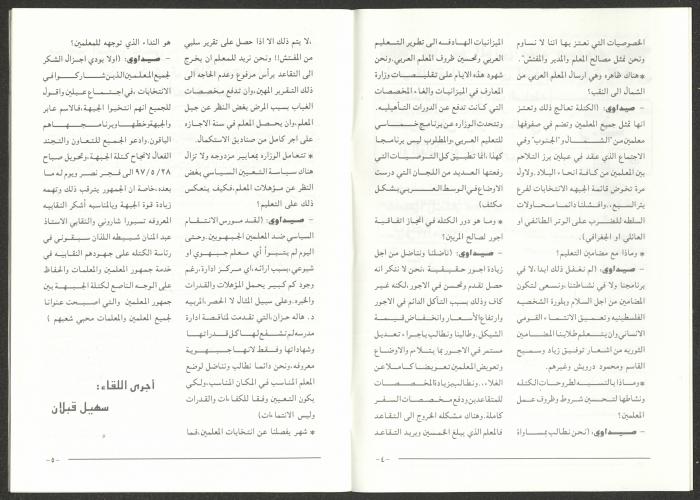 الخصوصيات التي نعتز بها اننا لا نساوم
ونحن نمثل مصالح المعلم والمدير والمفتش".
* هناك ظاهره وهي ارسال المعلم العربي من
الشمال الى النقب؟
– صيداوي: (الكتلة تعالج ذلك ونعتز
انها تمثل جميع المعلمين وتضم في صفوفها
معلمين من "الشمال" و"الجنوب" وفي
الاجتماع الذي عقد في عبلين برز التلاحم
بين المعلمين من كافة انحاء البلاد. ولاول
مرة تخوض قائمة الجبهه الانتخابات لفرع
بئر السبع،. وافشلنا دائما محاولات
السلطه للضرب على الوتر الطائفي او
العائلي او الجغرافي).
* وماذا مع مضامين التعليم؟
– صيداوي: (لم نغفل ذلك ابدا، لا في
برنامجنا ولا في نشاطتنا، ونسعى لتكون
المضامين من اجل السلام وبلورة الشخصيه
الفلسطينيه وتعميق الانتماء القومي
الانساني وان يتعلم طلابنا المضامين
الثوريه من اشعار توفيق زياد وسميح
القاسم ومحمود درويش وغيرهم.
* وماذا بالنسبه لطروحات الكتله
ونشاطها لتحسين شروط وظروف عمل
المعلمين؟
– صيداوي: (نحن نطالب بمساواة
الميزانيات الهادفه الى تطوير التعليم
العربي وتحسين ظروف المعلم العربي، ونحن
شهود هذه الايام على تقليصات وزارة
المعارف في الميزانيات والغاء المخصصات
التي كانت تدفع عن الدورات التأهيليه.
وتتحدث الوزاره عن برنامج خماسي
للتعليم العربي، والمطلوب ليس برنامجا
كهذا، انما تطبيق كل التوصيات التي
رفعتها العديد من اللجان التي درست
الاوضاع في الوسط العربي بشكل
مكثف)
* وما هو دور الكتله في انجاز اتفاقية
اجور لصالح المربين؟
– صيداوي: (ناضلنا ونناضل من اجل
زيادة اجور حقيقية، نحن لا ننكر انه
حصل تقدم وتحسن في الاجور، لكنه غير
كاف وذلك بسبب التآكل الدائم في الاجور
وارتفاع الأسعار وانخفاض قيمة
الشيكل. وطالبنا ونطالب باجراء تعديل
مستمر في الاجور بما يتلاءم والاوضاع
وتعويض المعلمين تعويضا كاملا عن
الغلاء،. ونطالب بزيادة المخصصات
للمتقاعدين ودفع مخصصات السفر
كاملة. وهناك مشكله الخروج الى التقاعد
فالمعلم الذي يبلغ الخمسين ويريد التقاعد
– ٤ –
،لا يتم ذلك الا اذا حصل على تقرير سلبي
من المفتش!! ونحن نريد للمعلم ان يخرج
الى التقاعد برأس مرفوع وعدم الحاجه الى
ذلك التقرير المهين، وان تدفع مخصصات
الغياب بسبب المرض بغض النظر عن جيل
المعلم، وان يحصل المعلم في سنة الاجازه
على اجر كامل من صناديق الاستكمال.
* تتعامل الوزاره بمعايير مزدوجه ولا تزال
هناك سياسة التعيين السياسي بغض
النظر عن مؤهلات المعلم، فكيف ينعكس
ذلك على التعليم؟
– صيداوي: (لقد مورس الانتقام
السياسي ضد المعلمين الجبهويين. وحتى
اليوم لم يتبوأ أي معلم جبهوي او
شيوعي، بسبب ارائه، اي مركز ادارة، رغم
وجود كم كبير يحمل المؤهلات والقدرات
والخبره. وعلى سبيل المثال لا الحصر، المربيه
د. هاله حزان، التي تقدمت لمناقصة ادارة
مدرسه لم تشفع لها كل قدراتها
وشهاداتها وفقط لانها جبهوية
معروفه، ونحن دائما نطالب ونناضل لوضع
المعلم المناسب في المكان المناسب، ولكي
يكون التعيين وفقا للكفاءات والقدرات
وليس الانتماءات)
* شهر يفصلنا عن انتخابات المعلمين، فما
هو النداء الذي توجهه للمعلمين؟
– صيداوي: (اولا بودي اجزال الشكر
لجميع المعلمين الذين شاركوا في
الانتخابات، في اجتماع عبلين واقول
للجميع انهم انتخبوا الجبهة، فالاسم عابر
والجبهة وخطها وبرنامجها هم
الباقون. وادعو الجميع للتعاون والتجند
الفعال لانجاح كتلة الجبهة، وتحويل صباح
٩٧/٥/٢٨ الى فجر نصر ويوم له ما
بعده، خاصة ان الجمهور يترقب ذلك وتهمه
زيادة قوة الجبهة وبالمناسبه أشكر النقابيه
المعروفه تسبورا شاروني والنقابي الاستاذ
عبد المنان شبيطه اللذان سبقوني في
رئاسة الكتله على جهودهم النقابيه في
خدمة جمهور المعلمين والمعلمات والحفاظ
على الوجه الناصع لكتلة الجبهة بين
جمهور المعلمين والتي اصبحت عنوانا
لجميع المعلمين والمعلمات محبي شعبهم)
أجرى اللقاء:
سهيل قبلان
– ٥ –